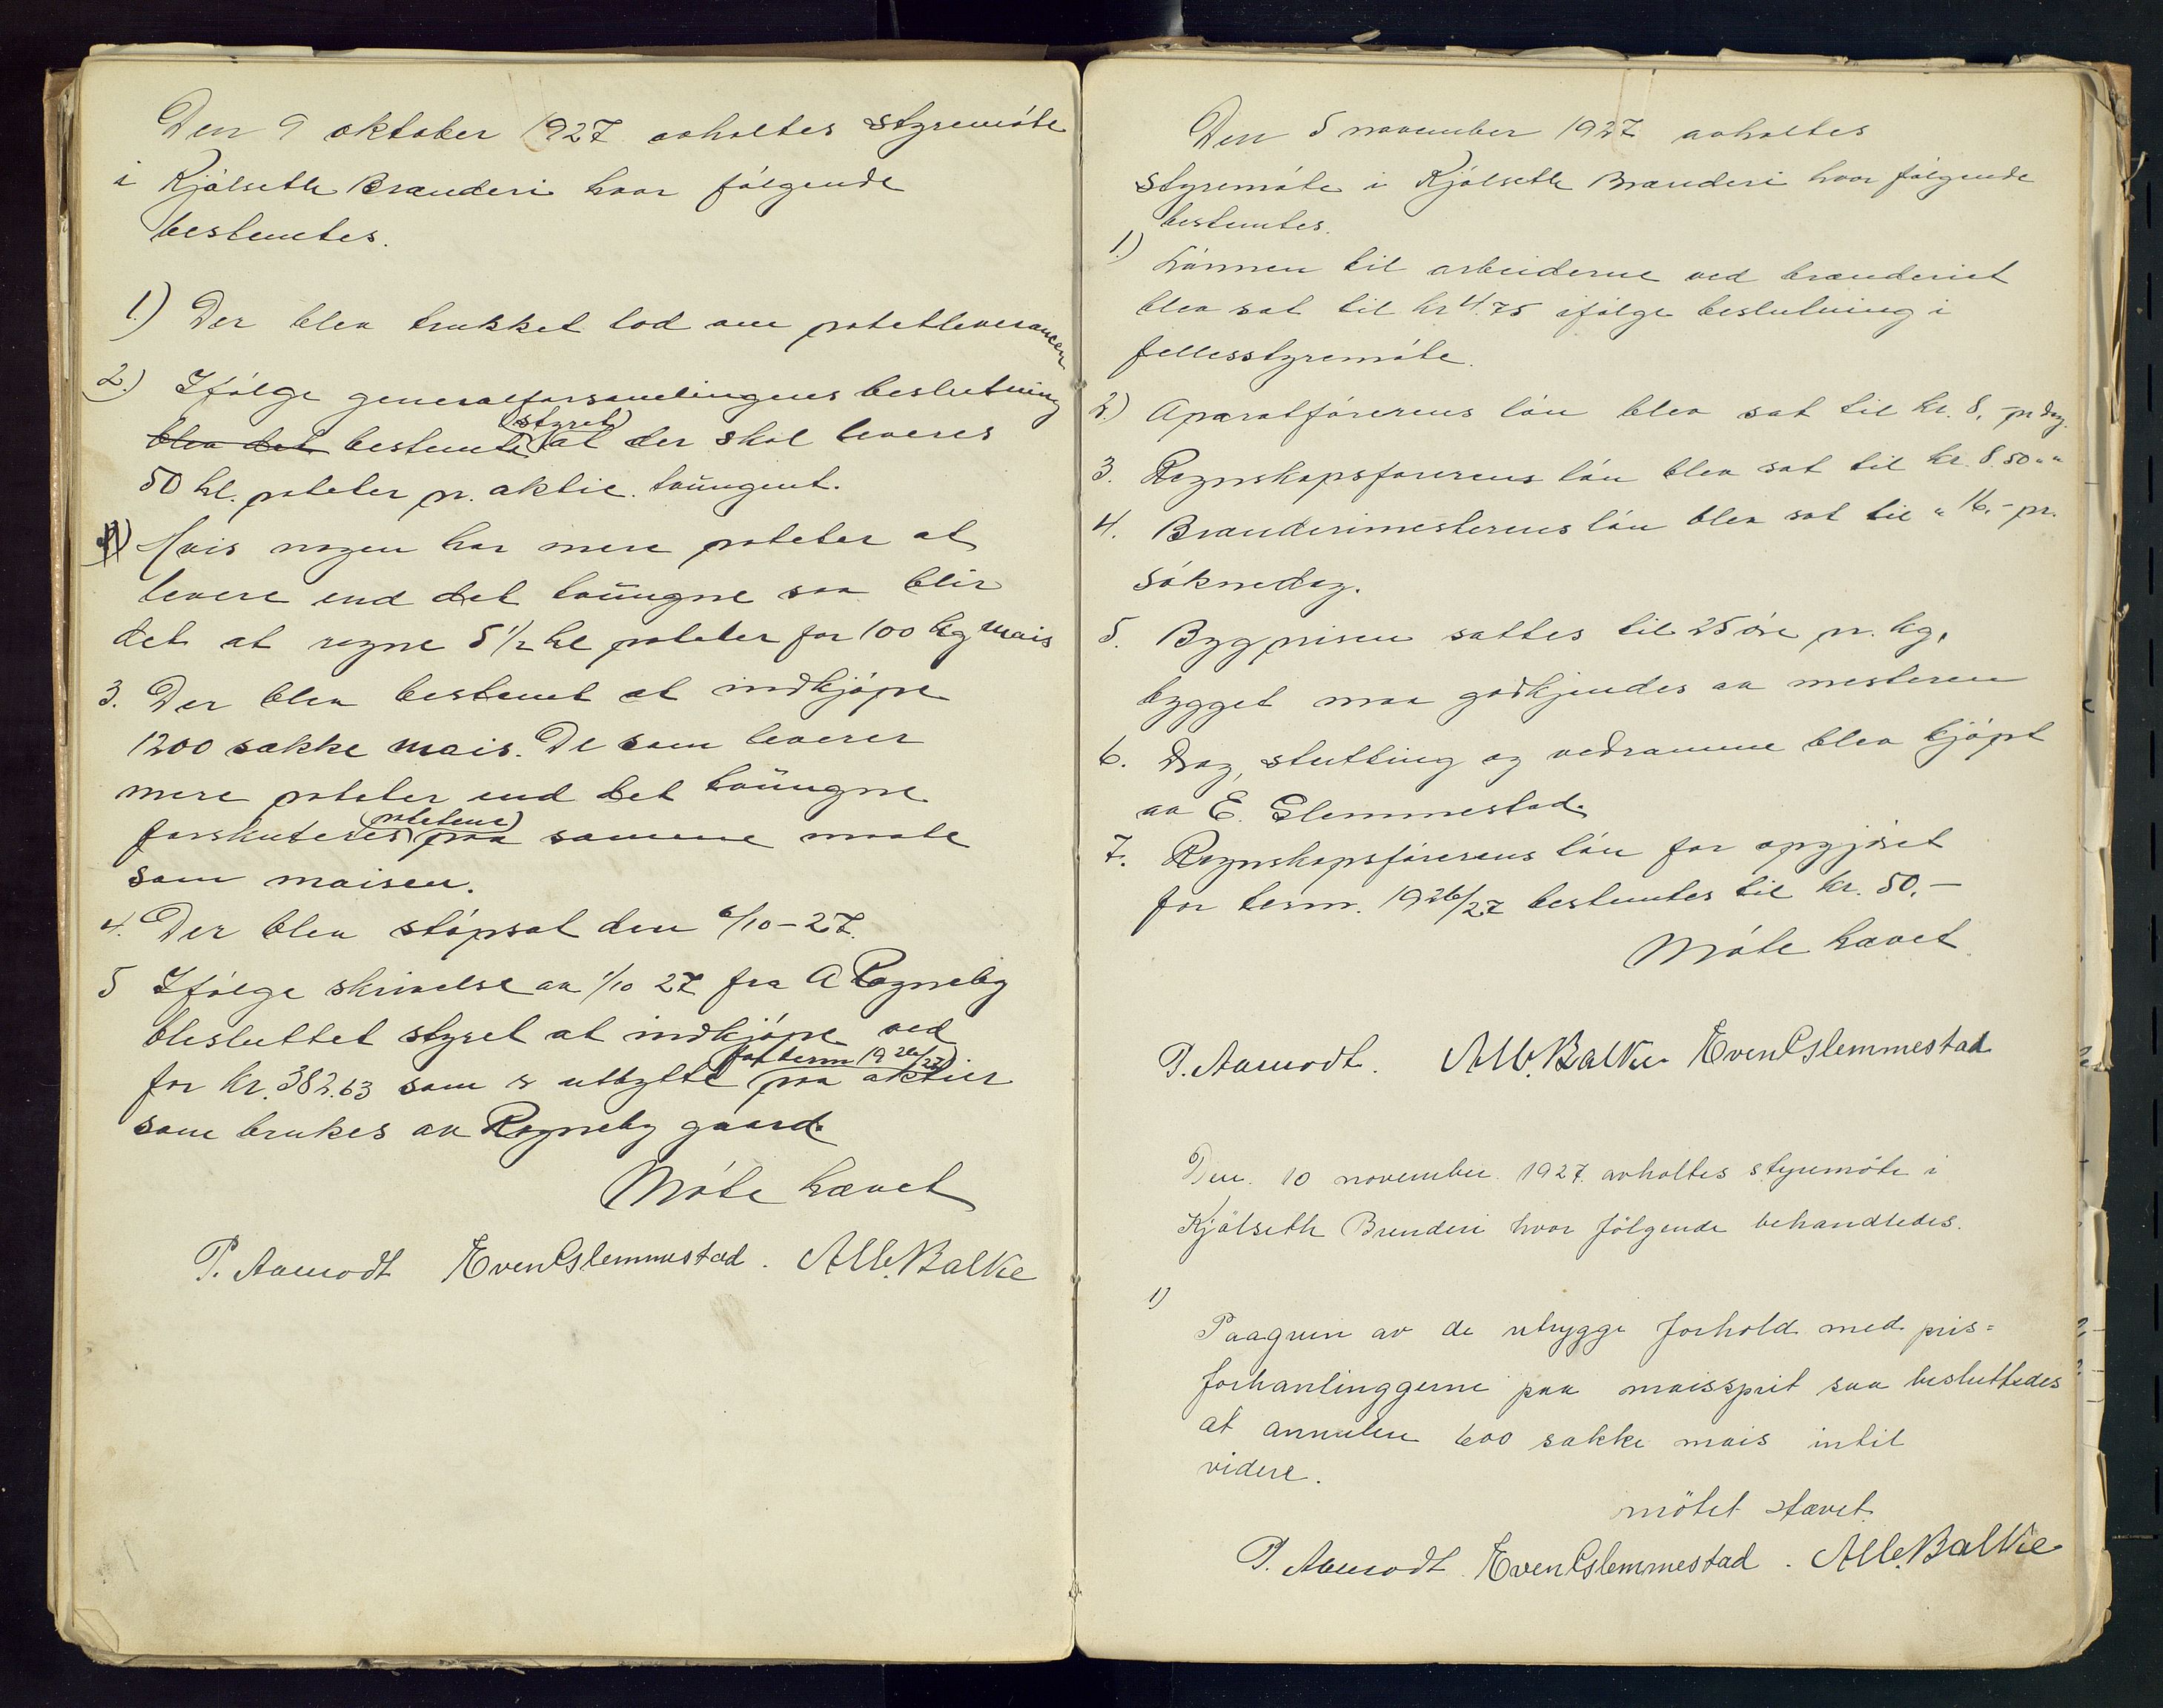 Den 9 oktober 1927 avholtes styremóte
i Kjólseth Brænderi hvor fólgende
bestemtes.
1.) Der blev trukket lod om potetleverancen
2.) Ifólge generalforsamlingens beslutning
blev det bestemte (styret) at der skal leveres
50 hl. poteter pr. aktie. tvungent.
Hvis nogen har mere poteter at
levere end det tvungne saa blir
det at regne 5 1/2 hl poteter for 100 kg mais
3. Der blev bestemt at indkjópe
1200 sække mais. De som leverer
mere poteter end det tvungne
forskuteres (potetene) paa samme maate
som maisen.
4. Der blev stópsat den 6/10-27.
5 Ifólge skrivelse av 1/10 27 fra A Rogneby
blesluttet styret at indkjópe ved
for kr. 382.63 som er utbytte (for term 1926/27) paa aktier
som brukes av Rogneby gaard.
Móte hævet
P. Aamodt Even Glemmestad. Alb. Balke
Den 5 november 1927 avholtes
styremóte i Kjólseth Brænderi hvor fólgende
bestemtes.
1.) Lónnen til arbeiderne ved brænderiet
blev sat til kr 4.75 ifólge beslutning i
fellesstyremóte.
2.) Aparatfórerens lón blev sat til kr. 8,- pr dag.
3. Regnskapsforerens lón blev sat til kr. 8.50 " "
4. Brænderimesterens lón blev sat til " 16,- pr.
sóknedag.
5. Bygprisen sattes til 25 óre pr. kg,
bygget maa godkjendes av mesteren
6. Drag, stutting og vedramme blev kjópt
av E. Glemmestad.
7. Regnskapsfórerens lón for opgjóret
for term. 1926/27 bestemtes til kr. 50,-
Móte hævet.
P. Aamodt. Alb. Balke Even Glemmestad
Den. 10 november 1927. avholtes styremöte i
Kjölseth Brenderi hvor fölgende behandledes.
1)
Paagrun av de utrygge forhold med pris=
forhanlinggerne paa maissprit saa besluttedes
at annulere 600 sække mais intil
videre.
mötet hævet
P. Aamodt. Even Glemmestad. Alb. Balke